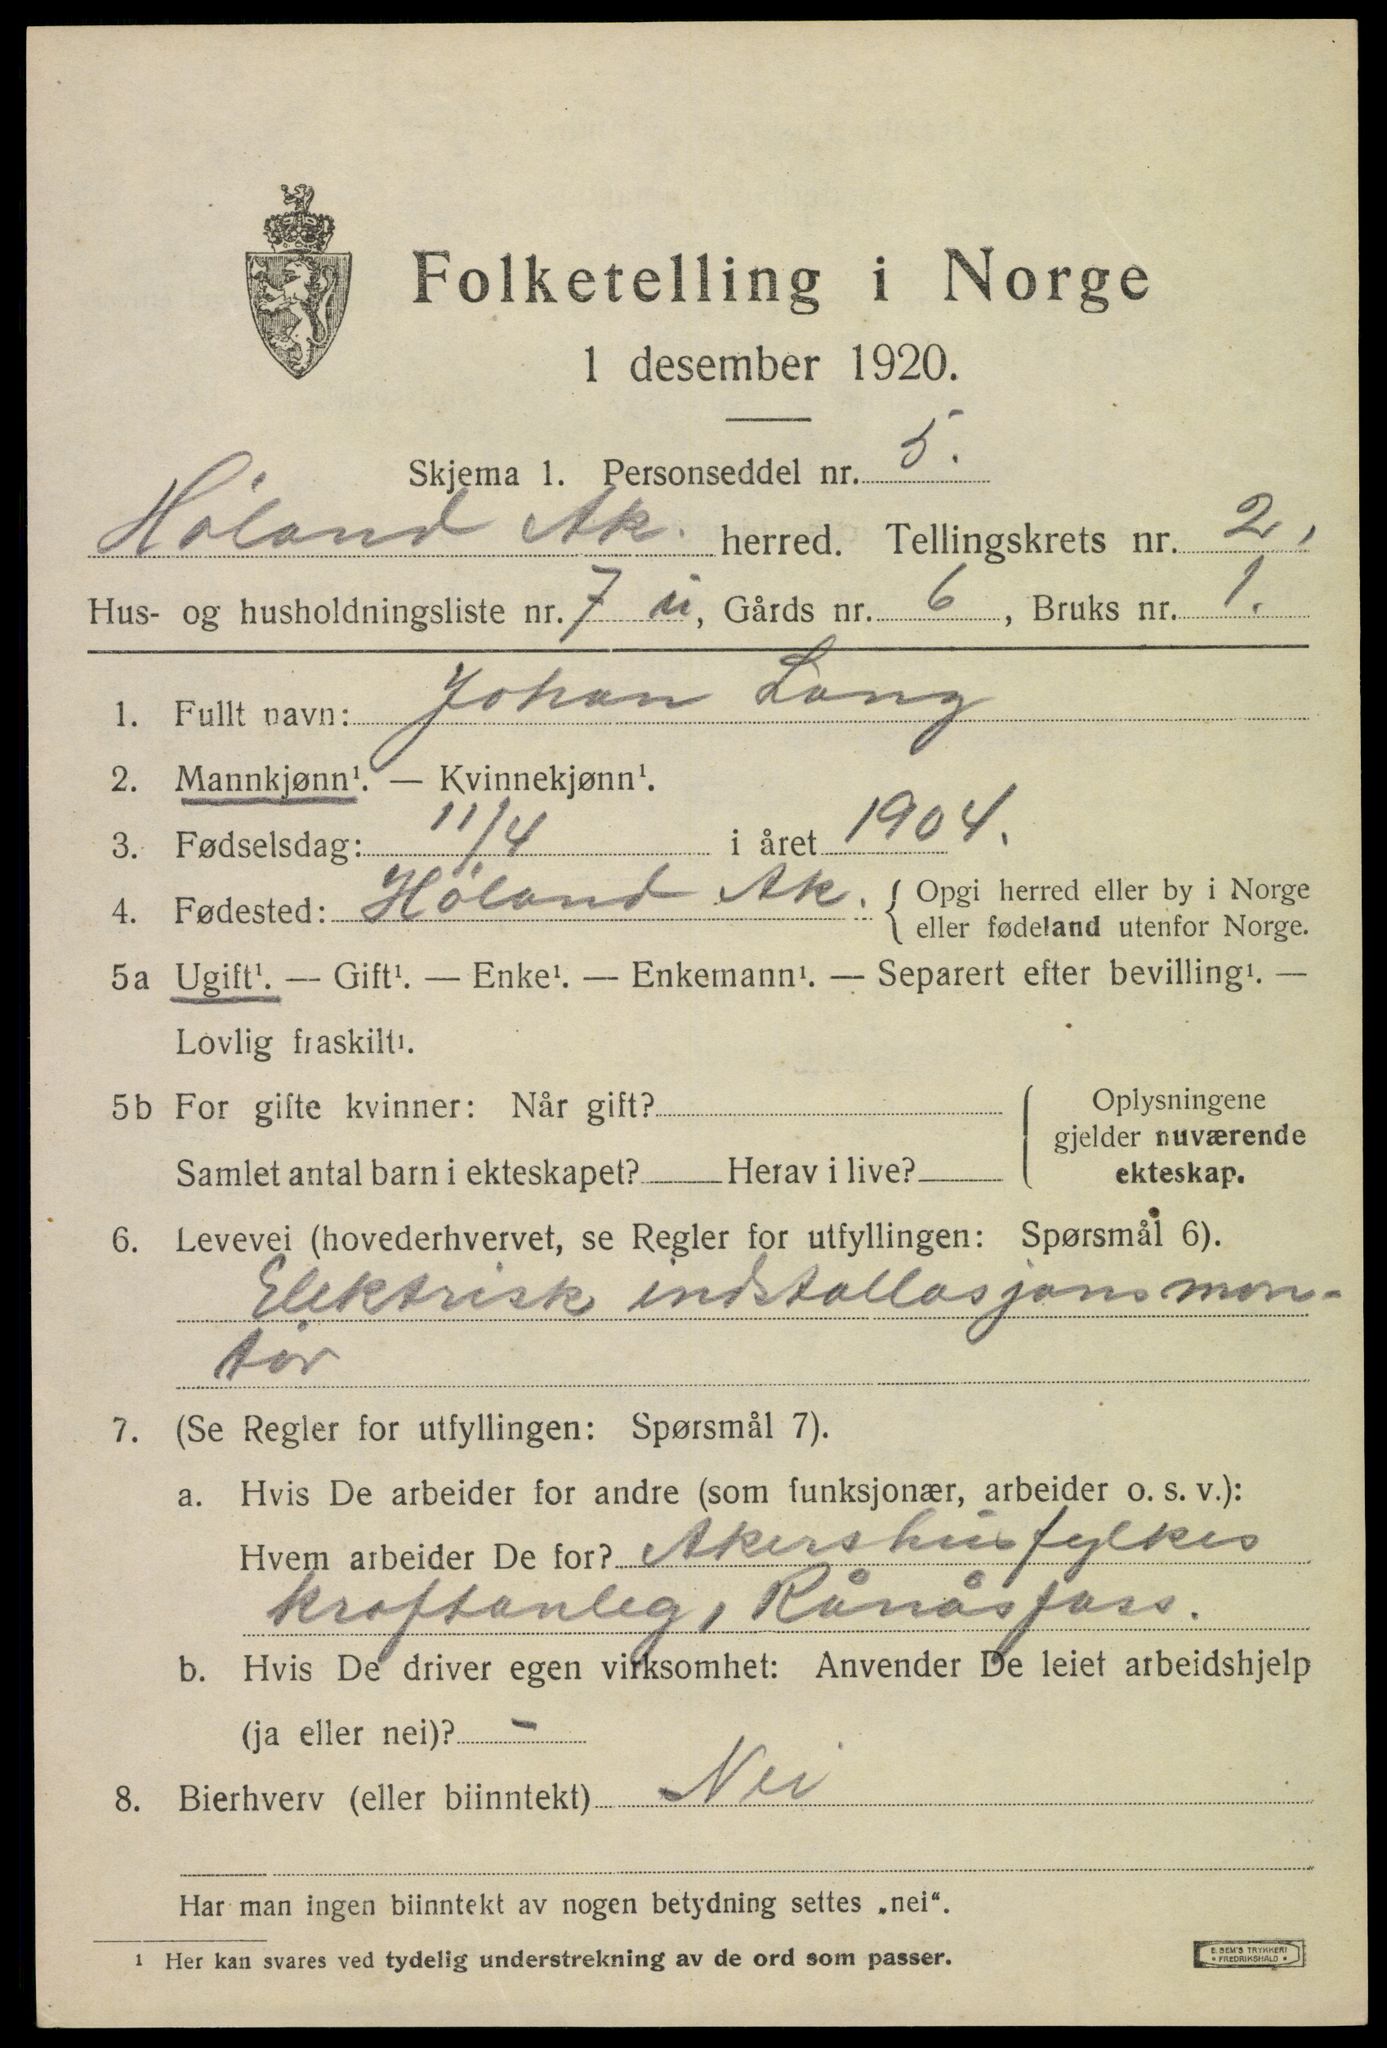 Folketelling i Norge
1 desember 1920.
Skjema 1. Personseddel nr. 5.
Høland Ak. herred. Tellingskrets nr. 2,
Hus- og husholdningsliste nr. 7 u, Gårds nr. 6, Bruks nr. 1.
1. Fullt navn: Johan Lang
2. Mannkjønn¹. — Kvinnekjønn¹.
3. Fødselsdag: 11/4 i året 1904.
4. Fødested: Høland Ak. { Opgi herred eller by i Norge
eller fødeland utenfor Norge.
5a Ugift¹. — Gift¹. — Enke¹. — Enkemann¹. — Separert efter bevilling¹. —
Lovlig fraskilt¹.
5b For gifte kvinner: Når gift?
Samlet antal barn i ekteskapet? Herav i live?
Oplysningene
gjelder nuværende
ekteskap.
6. Levevei (hovederhvervet, se Regler for utfyllingen: Spørsmål 6).
Elektrisk indstallasjonsmon-
tør
7. (Se Regler for utfyllingen: Spørsmål 7).
a. Hvis De arbeider for andre (som funksjonær, arbeider o. s. v.):
Hvem arbeider De for? Akershus fylkes
kraftanleg, Rånåsfoss.
b. Hvis De driver egen virksomhet: Anvender De leiet arbeidshjelp
(ja eller nei)? –
8. Bierhverv (eller biinntekt) Nei
Har man ingen biinntekt av nogen betydning settes „nei“.
¹ Her kan svares ved tydelig understrekning av de ord som passer.
E. SEM'S TRYKKERI
• FREDRIKSHALD •